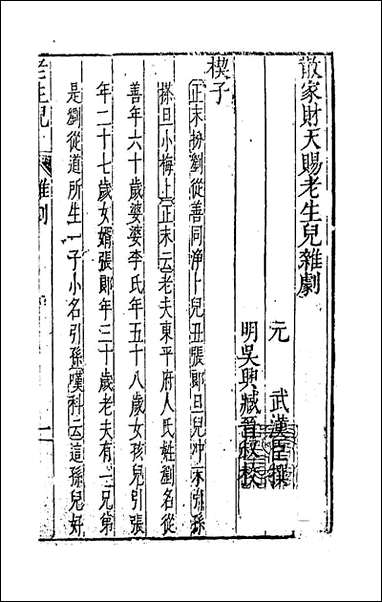 散家財天賜老生兒雜劇
元　武漢臣撰
明吳興臧晉叔校
楔子
正末扮劉從善同淨卜兒丑張郎旦兒沖末引孫
搽旦小梅上正末云老夫東平府人氏姓劉名從
善年六十歲婆婆李氏年五十八歲女孩兒引張
年二十七歲女壻張郎年三十歲老夫有一兄弟
是劉從道所生一子小名引孫嘆科云這孫兒好
老生兒　雜劇　一